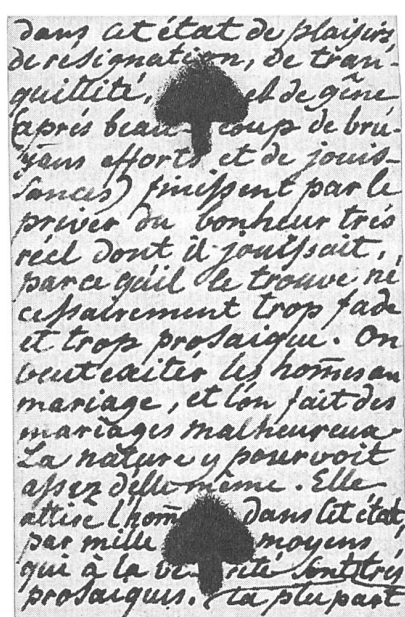 dans cet état de plaisirs,
de résignation, de tran-
quillité, et de gêne
(aprés beau- coup de bru-
yans efforts et de jouis-
sances) finissent par le
priver du bonheur trés
réel dont il jouissait,
parce qu'il le trouve né
cessairement trop fade
et trop prosaique. On
veut exiter les hom̄es au
mariage, et l'on fait des
mariages malheureux.
La nature y pourvoit
assez d'elle même. Elle
attire l'hom̄ dans cet état,
par mille moyens
qui à la vé- rité sont trés
prosaiques. La plupart